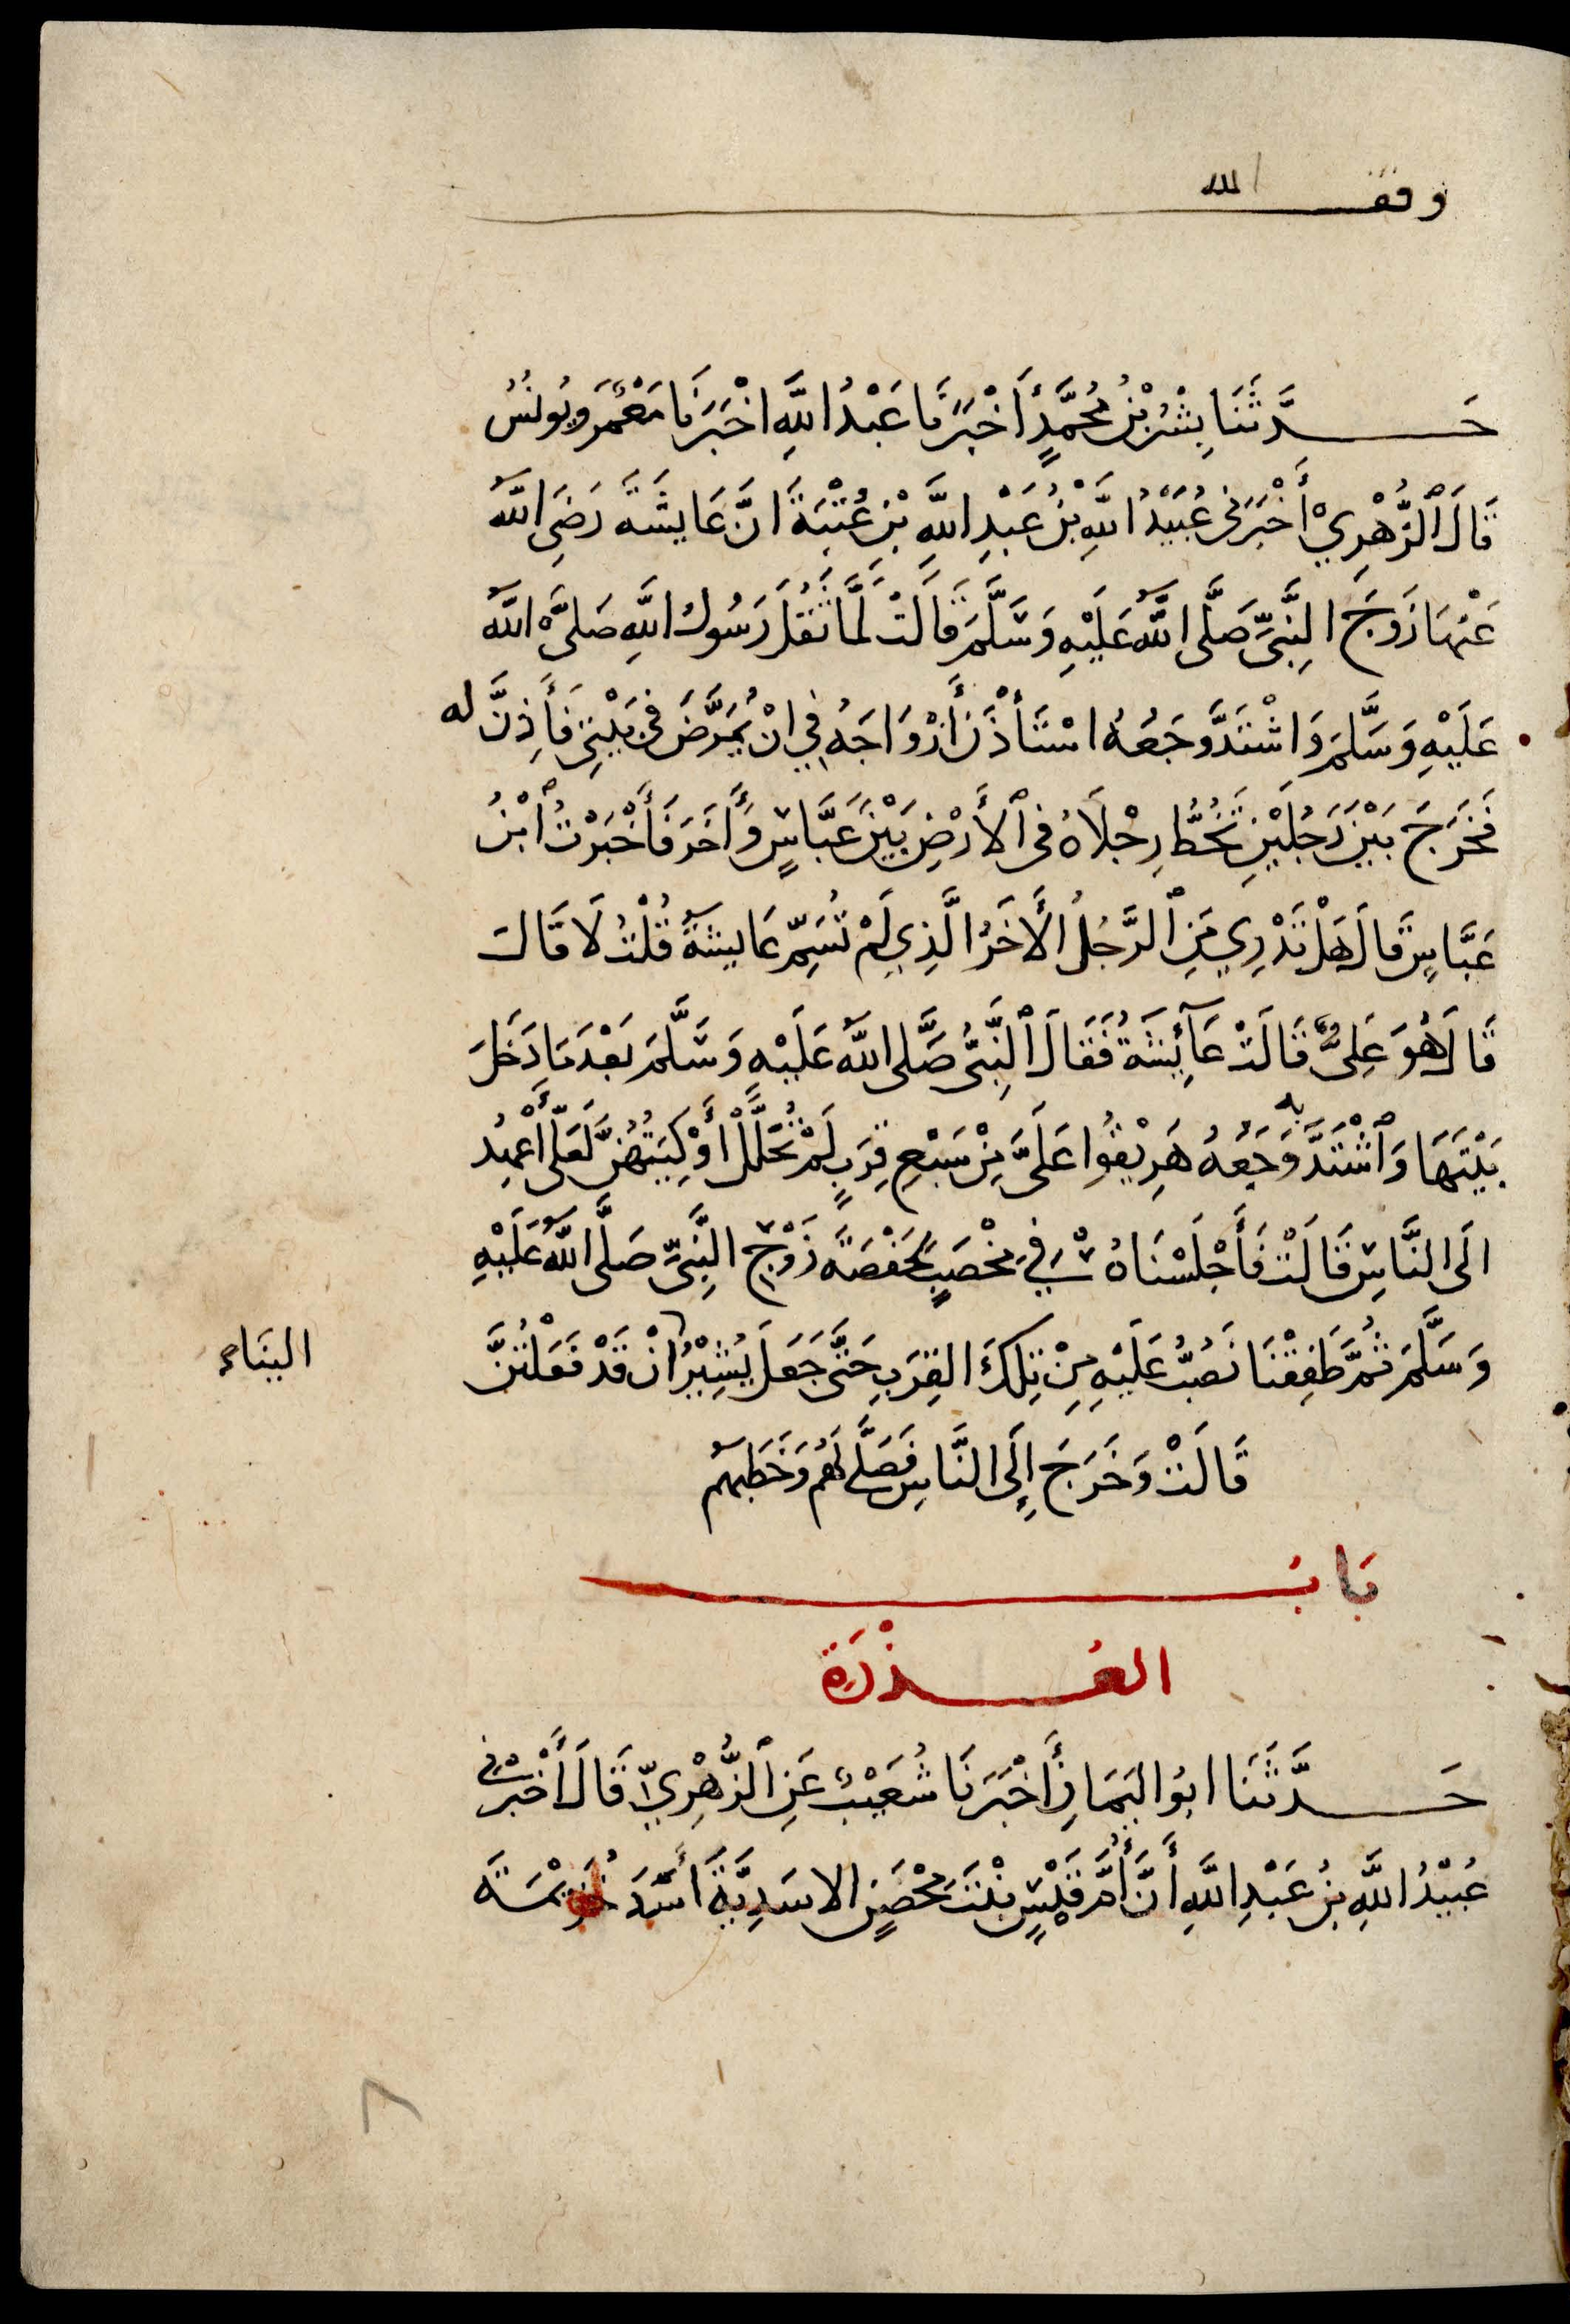 وقف لله
حَدَّثَنَا بِشْرُ بْنُ مُحَمَّدٍ أَخْبَرَنَا عَبْدُ اللَّهِ اخْبَرَنَا مَعْمَرٌ وَيُونُسُ
قَالَ ٱلزُّهْرِيْ أَخْبَرَنِي عُبَيْدُ اللَّهِ بْنُ عَبْدِ اللَّهِ بْنِ عُتْبَةَ انَّ عَايشَةَ رَضِيَ اللَّهُ
عَنْهَا زَوجَ النَّبِيِّ صَلَّى اللَّهُ عَلَيْهِ وَسَلَّمَ قَالَتْ لَمَّا ثَقُلَ رَسُولُ اللَّهِ صَلَّى اللَّهُ
عَلَيْهِ وَسَلَّمَ وَاشْتَدَّ وَجَعُهُ اسْتَأْذَنَ أَزْوَاجَهُ فِي انْ يُمَرَّضَ فِي بَيْتِي فَأَذِنَّ له
فَخَرَجَ بَيْنَ رَجُلَيْنِ تَخُطُّ رِجْلَاهُ فِي ٱلأَرْضِ بَيْنَ عَبَّاسٍ وَأَخَرَ فَأَخْبَرْتُ ٱبْنَ
عَبَّاسٍ قَالَ هَلْ تَدْرِي مَنِ ٱلرَّجُلُ الأَخَرُ الَّذِي لَمْ تُسَمِّ عَايشَةُ قُلْتُ لَا قَالَ
قَالَ هُوَ عَلِيٌّ قَالَتْ عَآئِشَةُ فَقَالَ ٱلنَّبِيُّ صَلَّى اللَّهُ عَلَيْهِ وَسَلَّمَ بَعْدَمَا دَخَلَ
بَيْتَهَا وَٱشْتَدَّ بِهِ وَجَعُهُ هَرِيقُوا عَلَيَّ مِنْ سَبْعِ قِرَبٍ لَمْ تُحْلَلْ أَوْكِيَتُهُنَّ لَعَلِّي أَعْهَدُ
الَى النَّاسِ قَالَتْ فَأَجْلَسْنَاهُ فِي مِخْضَبٍ لِحَفْصَةَ زَوْجِ النَّبِيِّ صَلَّى اللَّهُ عَلَيْهِ
وَسَلَّمَ ثُمَّ طَفِقْنَا نَصُبُّ عَلَيْهِ مِنْ تِلْكَ القِرَبِ حَتَّى جَعَلَ يُشِيْرُ انْ قَدْ فَعَلْتُنَّ
الينَاء
قَالَتْ وَخَرَجَ إِلَى النَّاسِ فَصَلَّى لَهُمْ وَخَطَبَهُم
بَابُ
العُذْرَة
حَدَّثَنَا ابُو اليَمَانِ أَخْبَرَنَا شُعَيْبٌ عَنِ ٱلزُّهْرِيِّ قَالَ أَخْبَرَنِي
عُبَيْدُ اللَّهِ بْنُ عَبْدِ اللَّهِ أَنَّ أُمَّ قَيْسٍ بِنْتَ مِحْصَنٍ الاسَدِيَّةَ أَسَدَ خُزَيْمَةَ
٨